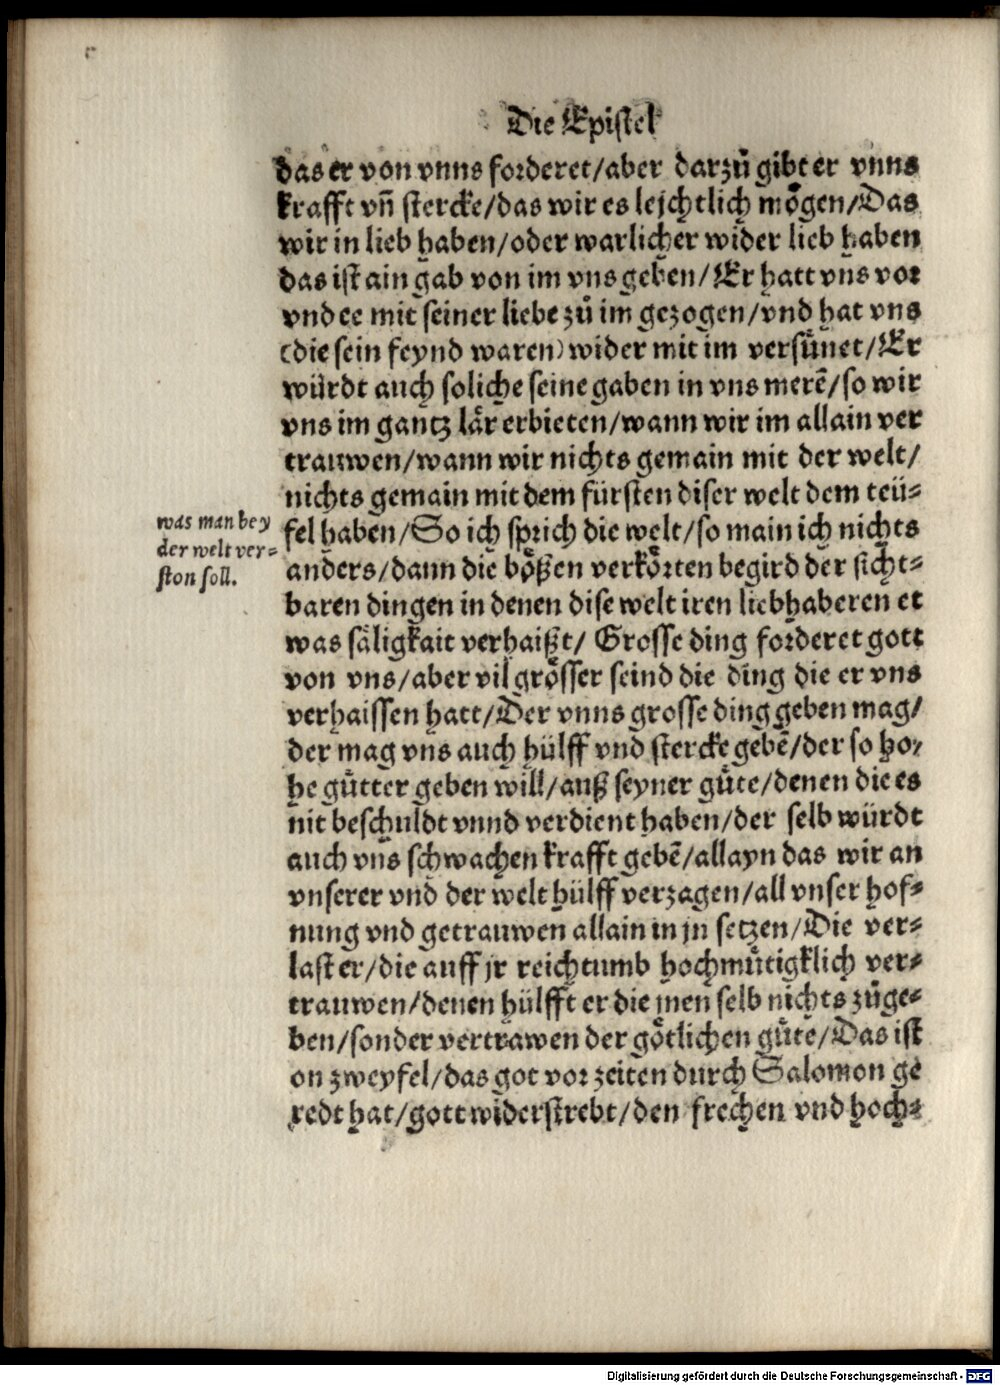 Die Epistel
das er von vnns forderet/aber darzů gibt er vnns
krafft vñ stercke/das wir es leichtlich mögen/Das
wir in lieb haben/oder warlicher wider lieb haben
das ist ain gab von im vns geben/Er hatt vns vor
vnd ee mit seiner liebe zů im gezogen/vnd hat vns
(die sein feynd waren) wider mit im versůnet/Er
würdt auch soliche seine gaben in vns merẽ/so wir
vns im gantz lär erbieten/wann wir im allain ver
trauwen/wann wir nichts gemain mit der welt/
nichts gemain mit dem fürsten diser welt dem teü-
fel haben/So ich sprich die welt/so main ich nichts
was man bey
der welt ver-
ston soll.
anders/dann die bößen verkörten begird der sicht-
baren dingen in denen dise welt iren liebhaberen et
was säligkait verhaißt/ Grosse ding forderet gott
von vns/aber vil grösser seind die ding die er vns
verhaissen hatt/Der vnns grosse ding geben mag/
der mag vns auch hülff vnd stercke gebẽ/der so ho-
he gůtter geben will/auß seyner gůte/denen die es
nit beschuldt vnnd verdient haben/der selb würdt
auch vns schwachen krafft gebẽ/allayn das wir an
vnserer vnd der welt hülff verzagen/all vnser hof-
nung vnd getrauwen allain in jn setzen/Die ver-
last er/die auff jr reichtumb hochmůtigklich ver-
trauwen/denen hülfft er die jnen selb nichts zůge-
ben/sonder vertrawen der götlichen gůte/Das ist
on zweyfel/das got vor zeiten durch Salomon ge
redt hat/gott widerstrebt/den frechen vnd hoch-
Digitalisierung gefördert durch die Deutsche Forschungsgemeinschaft - DFG